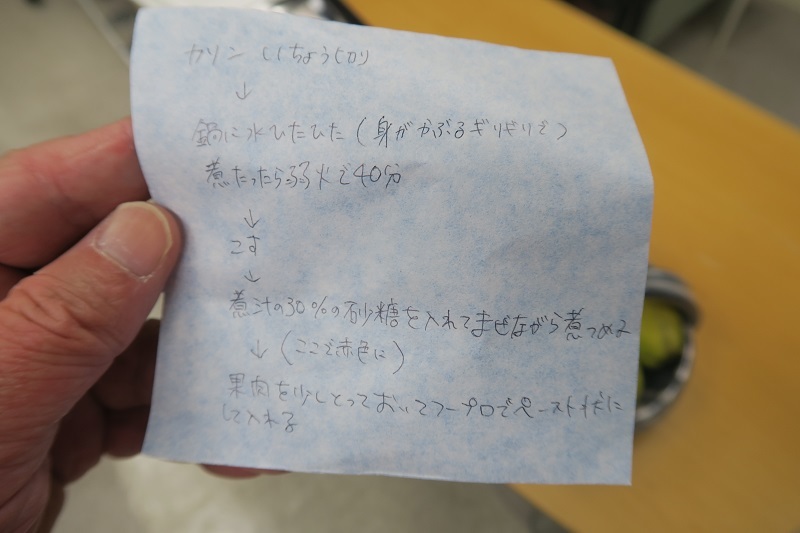 カリン いちょう切り
↓
鍋に水ひたひた(身がかぶるギリギリで)
煮たったら弱火で40分
↓
こす
↓
煮汁の30%の砂糖を入れてまぜながら煮つめる
↓(ここで赤色に)
果肉を少しとっておいてフープロでペースト状に
して入れる